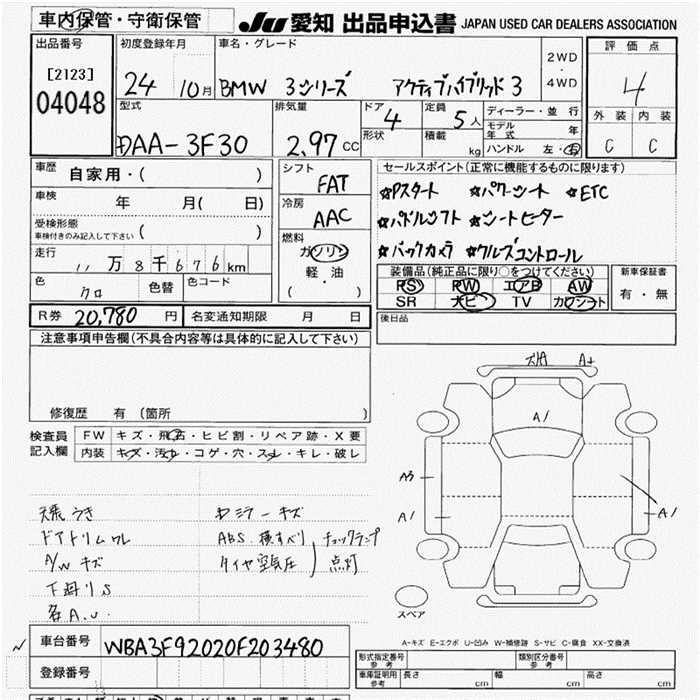 車内保管・守衛保管
JU 愛知 出品申込書 JAPAN USED CAR DEALERS ASSOCIATION
出品番号
[2123]
04048
初度登録年月
24 10月
車名・グレード
BMW 3シリーズ アクティブハイブリッド3
2WD
4WD
評価点
4
外装 内装
C C
型式
DAA-3F30
排気量
2.97 CC
ドア
4
形状
定員
5人
積載
kg
ディーラー・並行
モデル年式 年
ハンドル 左・右
車歴
自家用・( )
車検
年 月( 日)
受検形態
車検付きのみ記入して下さい ( )
走行
11万8千676km
色
クロ
色替
色コード
シフト
FAT
冷房
AAC
燃料
ガソリン
軽・油
( )
セールスポイント(正常に機能するものに限ります)
☆Pスタート ☆パワーシート ☆ETC
☆パドルシフト ☆シートヒーター
☆バックカメラ ☆クルーズコントロール
装備品(純正品に限り○をつけてください)
PS PW エアB AW
SR ナビ TV カワシート
新車保証書
有・無
R券 20,780 円
名変通知期限 月 日
後日品
注意事項申告欄(不具合内容等は具体的に記入して下さい)
修復歴 有 (箇所 )
検査員
記入欄
FW キズ・飛石・ヒビ割・リペア跡・X要
内装 キズ・汚れ・コゲ・穴・スレ・キレ・破レ
天張うき
ドアトリムワレ
A/Wキズ
下廻りS
各A.U.
ロミラーキズ
ABS 横すべり
タイヤ空気圧
チェックランプ
点灯
ズ/A A+
A1
A3
A1
A1
スペア
A-キズ E-エクボ U-凹み W-補修跡 S-サビ C-腐食 XX-交換済
車台番号 WBA3F92020F203480
登録番号
形式指定番号
参考
類別区分番号
参考
車庫証明用
参考
長さ cm 幅 cm 高さ cm